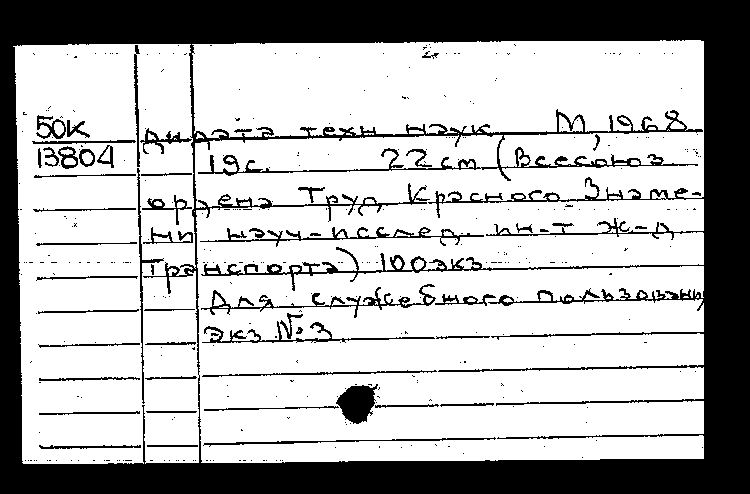 2.
50К дидата техн наук М, 1968
13804 19с. 22см (Всесоюз
ордена Труд Красного Знаме-
ни науч-исслед. ин-т ж-д
транспорта) 100экз
Для служебного пользовани
экз №3